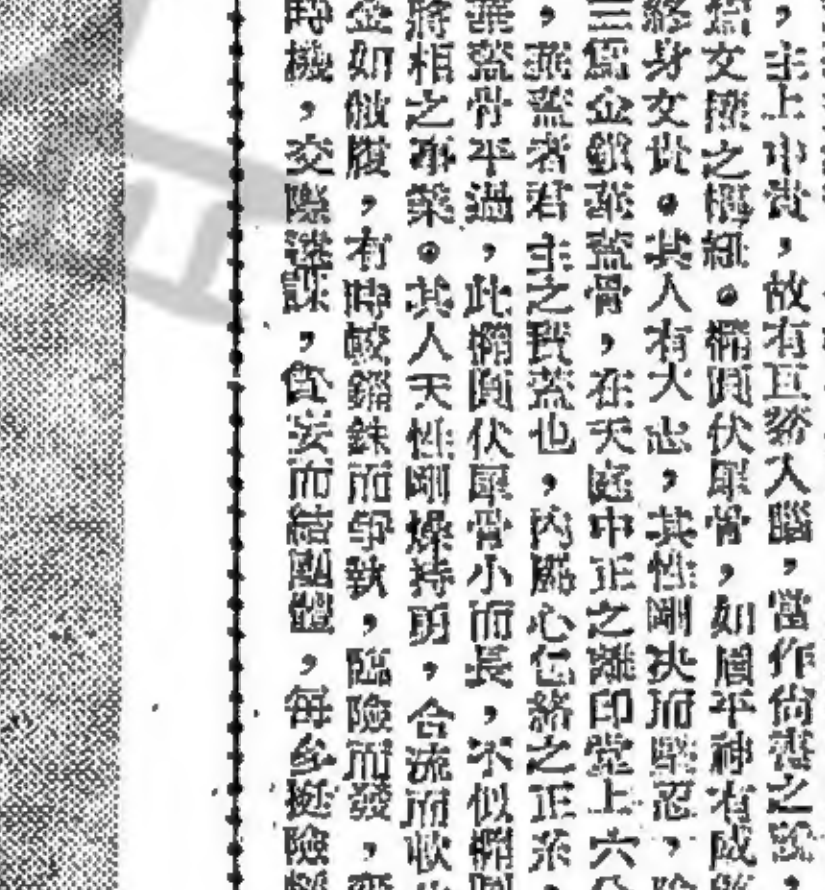 ，主上中貴，故有巨鰲入腦，當作尚書之說，
文樞之樞紐。橢圓伏犀骨，如眉平神有威
終身文貴。其人有大志，其性剛決而堅忍，
三爲金鐵華蓋骨，在天庭中正之離印堂上六
，華蓋者君主之我蓋也，內屬心包絡之正系，
華蓋骨平過，此橢圓伏犀骨小而長，不似橢圓
將相之事業。其人天性剛燥持勇，合流而收
金如做履，有時較錙銖而爭執，臨險而發，變
時機，交際謎謀，貪妄而結團體，每多挺險